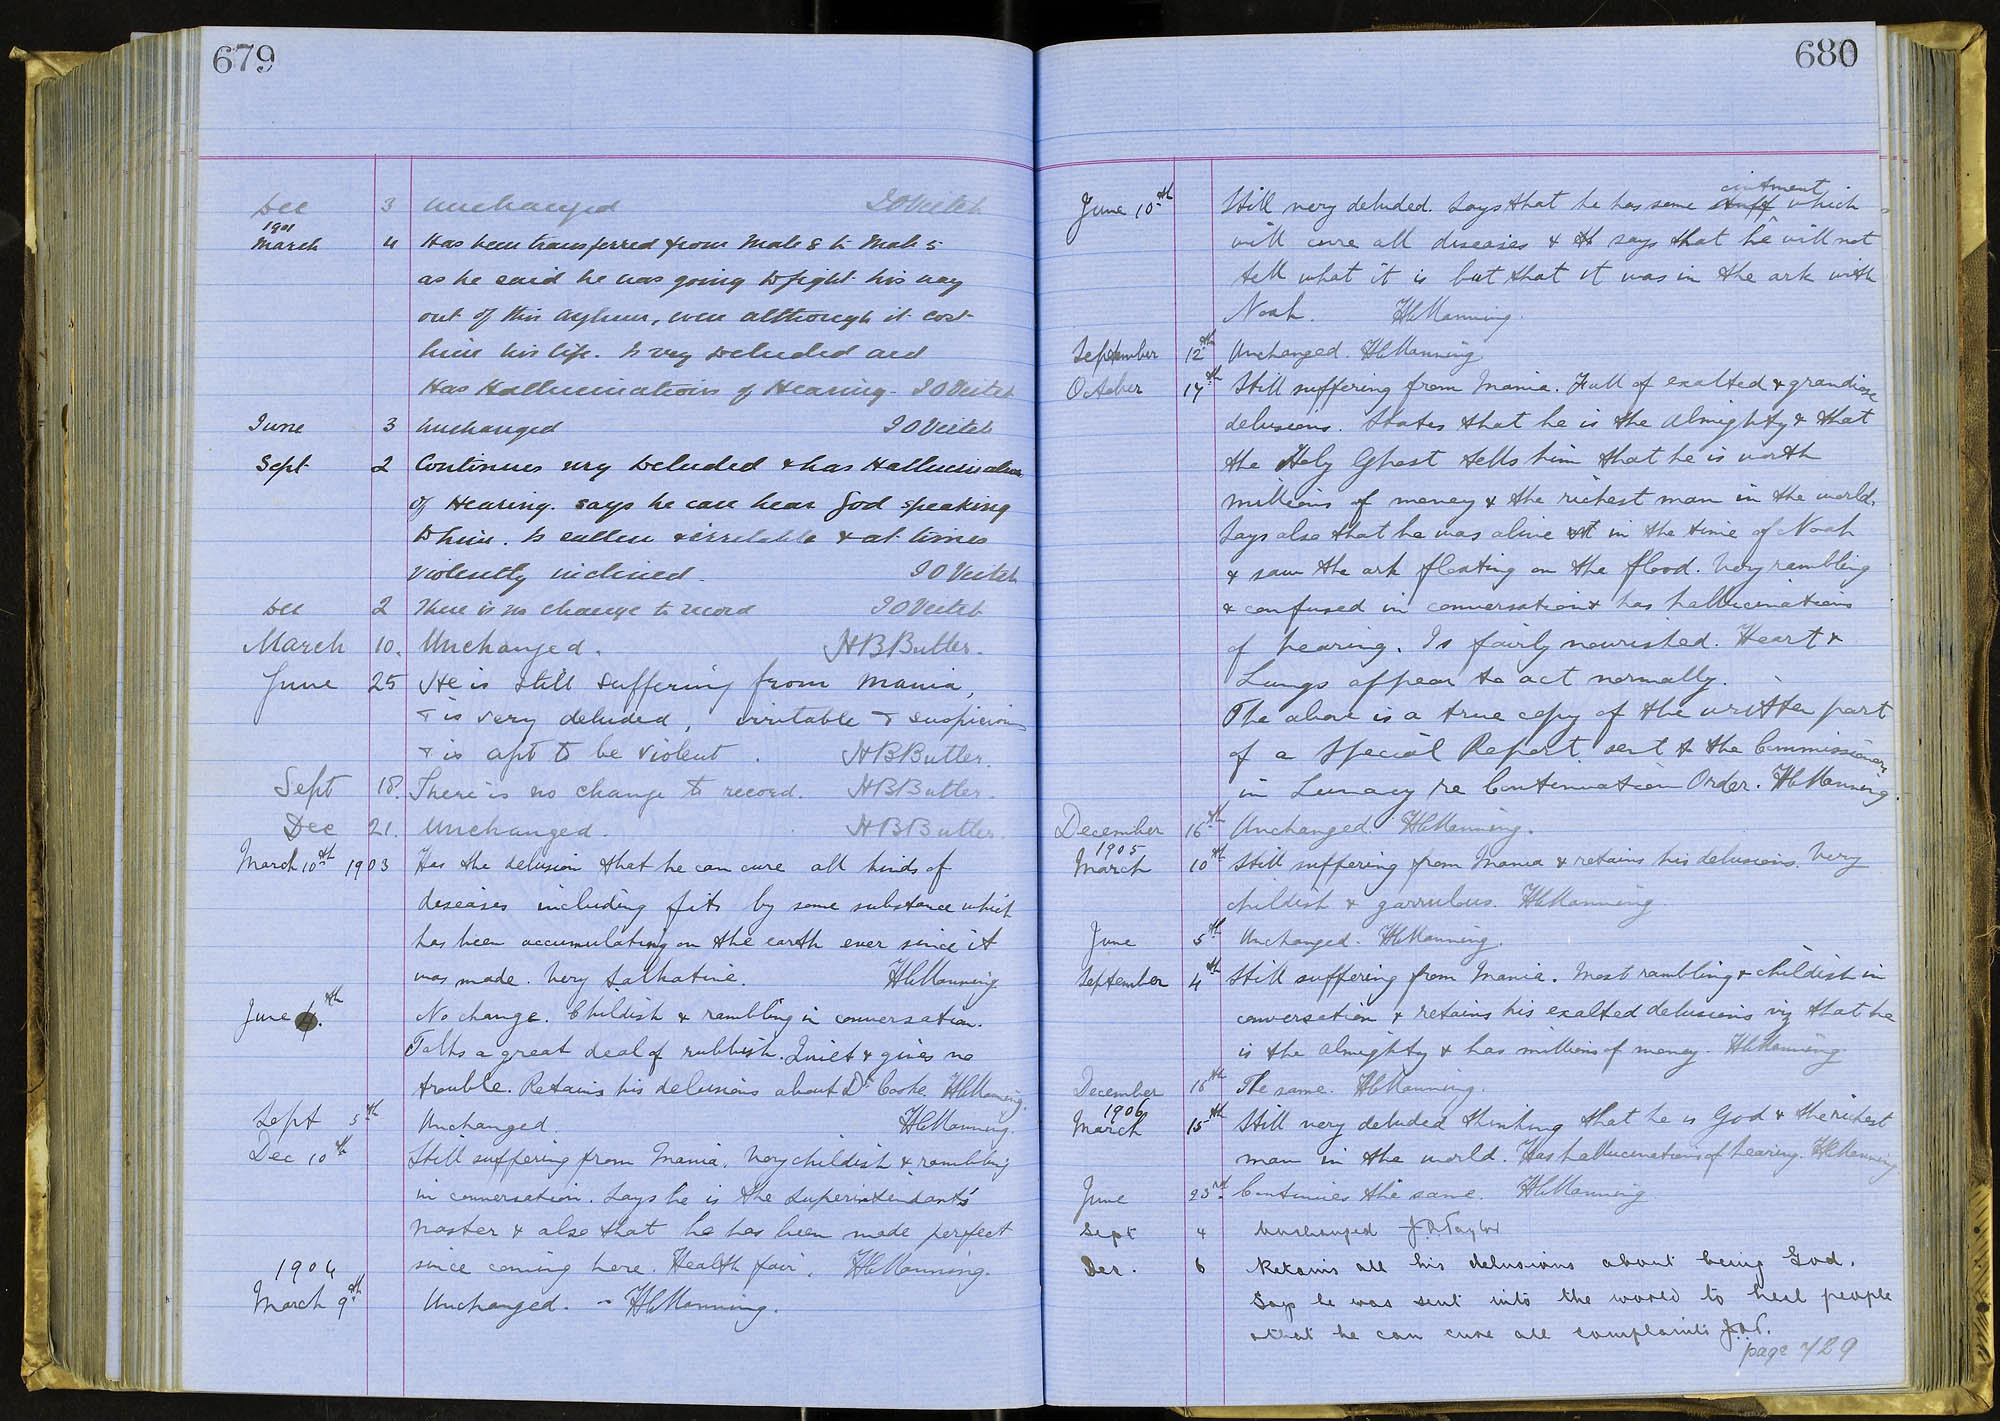 679
Dec 3 Unchanged J O Veitch
1901
March 4 Has been transferred from Male 8 to Male 5
as he said he was going to fight his way
out of this Asylum, even although it cost
him his life. Is very deluded and
Has Hallucinations of Hearing. J O Veitch
June 3 Unchanged J O Veitch
Sept 2 Continues very deluded & has Hallucinations
of Hearing. says he can hear God speaking
to him. Is sullen & irritable & at times
violently inclined. J O Veitch
Dec 2 There is no change to record J O Veitch
March 10. Unchanged. H B Butler.
June 25 He is still suffering from Mania,
& is very deluded, irritable & suspicious
& is apt to be violent. H B Butler.
Sept 18. There is no change to record. H B Butler.
Dec 21. Unchanged. H B Butler.
March 10th 1903 Has the delusion that he can cure all kinds of
diseases including fits by some substance which
has been accumulating on the earth ever since it
was made. Very talkative. H C Manning
June 4th. No change. Childish & rambling in conversation.
Talks a great deal of rubbish. Quiet & gives no
trouble. Retains his delusions about Dr Cooke. H C Manning.
Sept 5th Unchanged. H C Manning.
Dec 10th Still suffering from Mania. Very childish & rambling
in conversation. Says he is the Superintendant's
master & also that he has been made perfect
1904 since coming here. Health fair. H C Manning.
March 9th Unchanged. - H C Manning.
680
June 10th Still very deluded. Says that he has some stuff ointment which
will cure all diseases & says that he will not
tell what it is but that it was in the ark with
Noah. H C Manning.
September 12th Unchanged. H C Manning
October 17th Still suffering from Mania. Full of exalted & grandiose
delusions. States that he is the Almighty & that
the Holy Ghost tells him that he is worth
millions of money & the richest man in the world.
Says also that he was alive at in the time of Noah
& saw the ark floating on the flood. Very rambling
& confused in conversation & has hallucinations
of hearing. Is fairly nourished. Heart &
Lungs appear to act normally.
The above is a true copy of the written part
of a Special Report sent to the Commissioners
in Lunacy re Continuation Order. H C Manning.
December 16th Unchanged. H C Manning.
1905
March 10th Still suffering from Mania & retains his delusions. Very
childish & garrulous. H C Manning.
June 5th Unchanged. H C Manning.
September 4th Still suffering from Mania. Most rambling & childish in
conversation & retains his exalted delusions viz that he
is the Almighty & has millions of money. H C Manning
December 15th The same. H C Manning.
1906
March 15th Still very deluded thinking that he is God & the richest
man in the world. Has hallucinations of hearing. H C Manning
June 23rd Continues the same. H C Manning
Sept 4 Unchanged J.R. Taylor
Dec. 6 Retains all his delusions about being God.
Says he was sent into the world to heal people
& that he can cure all complaints J.R.T.
page 729